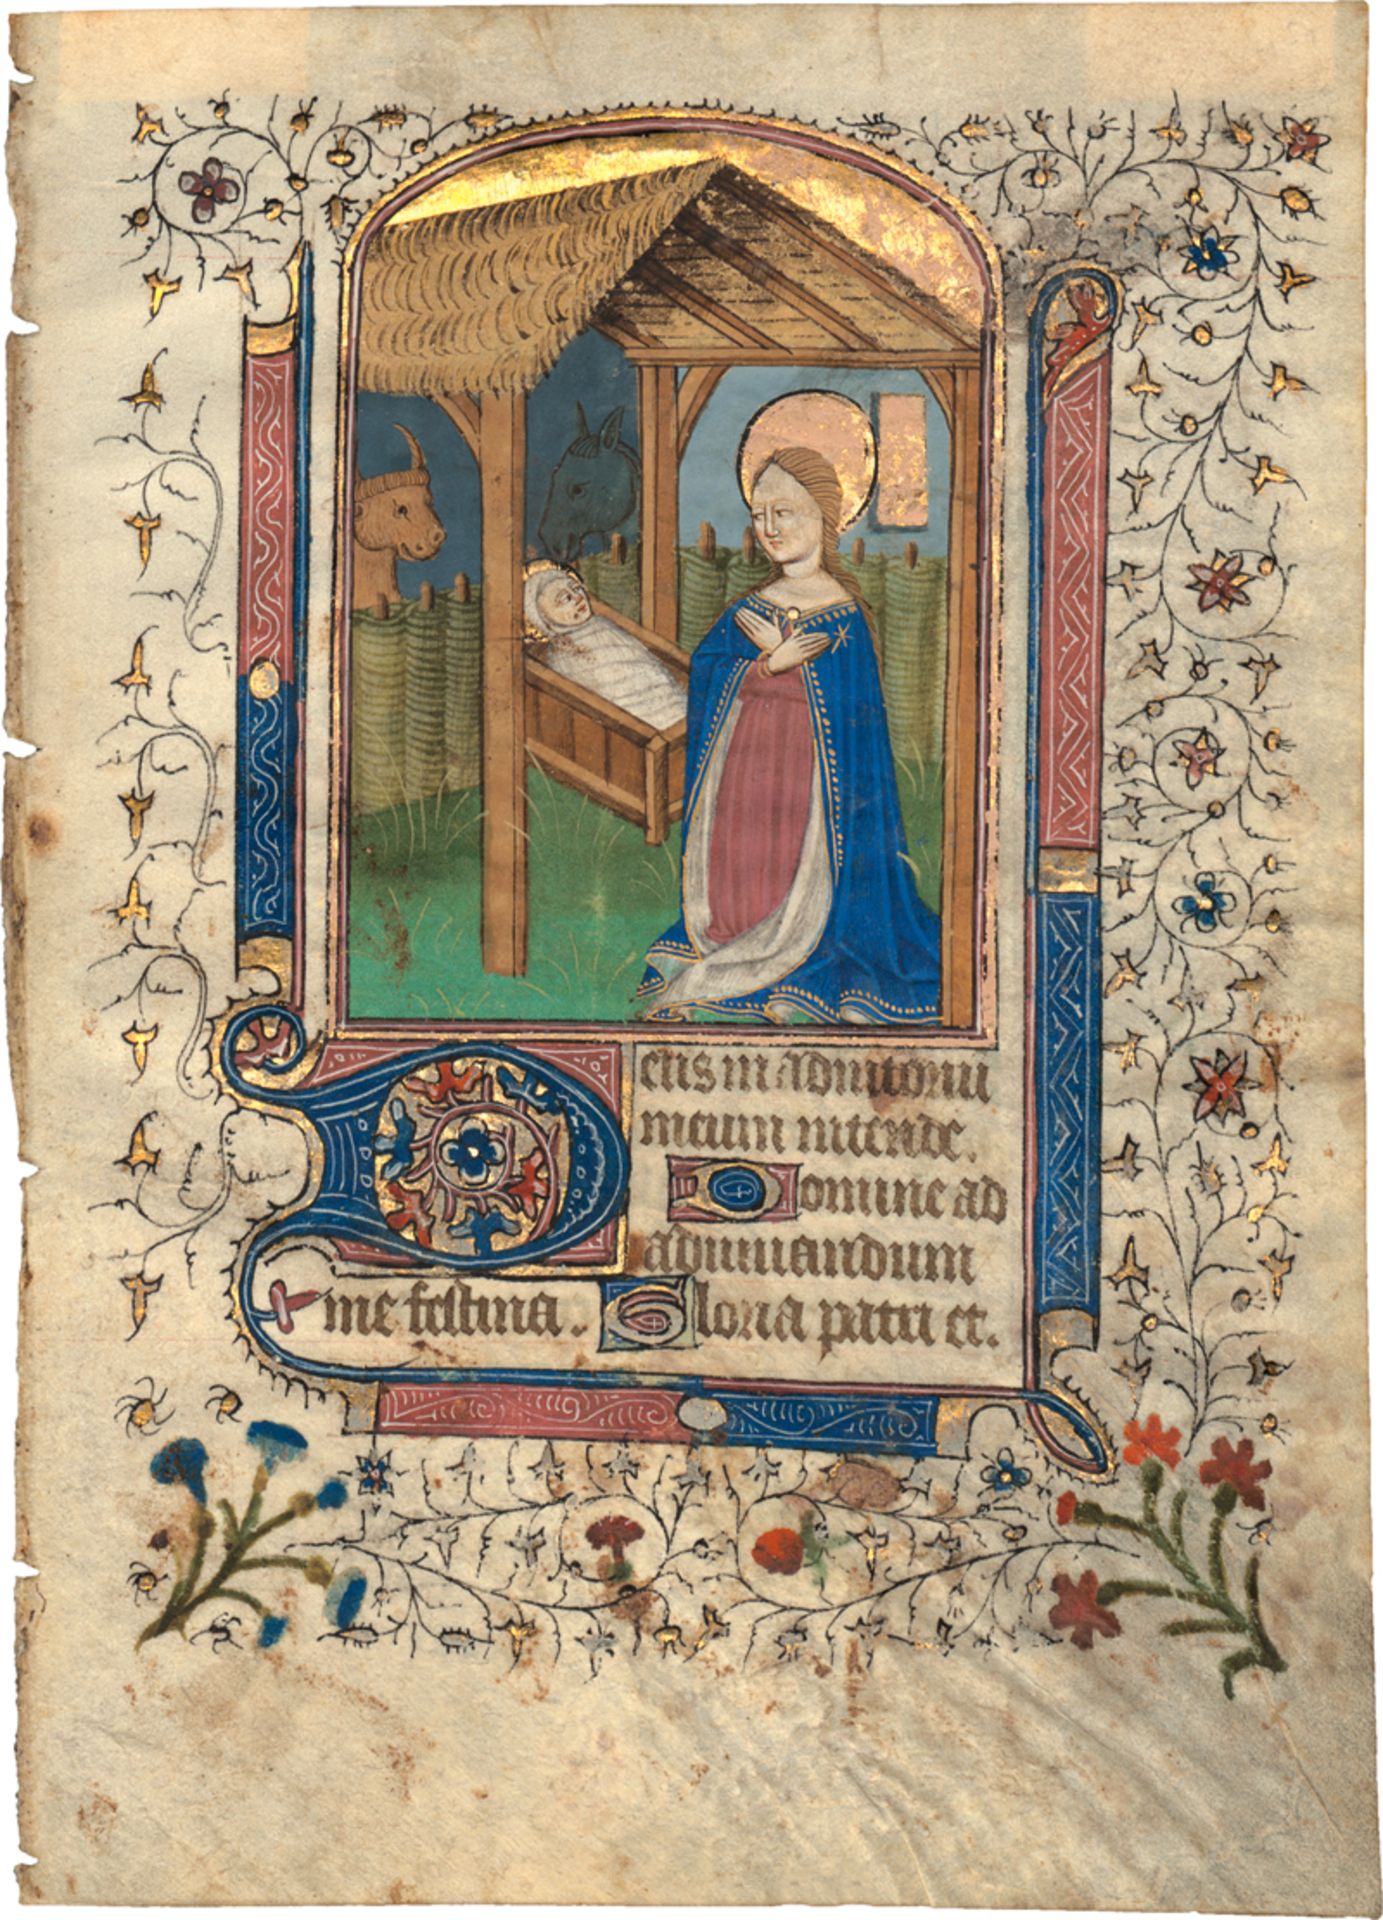 Deus in adiutoriu
meum intende.
Domine ad
adiuuandum
me festina. Gloria patri et.